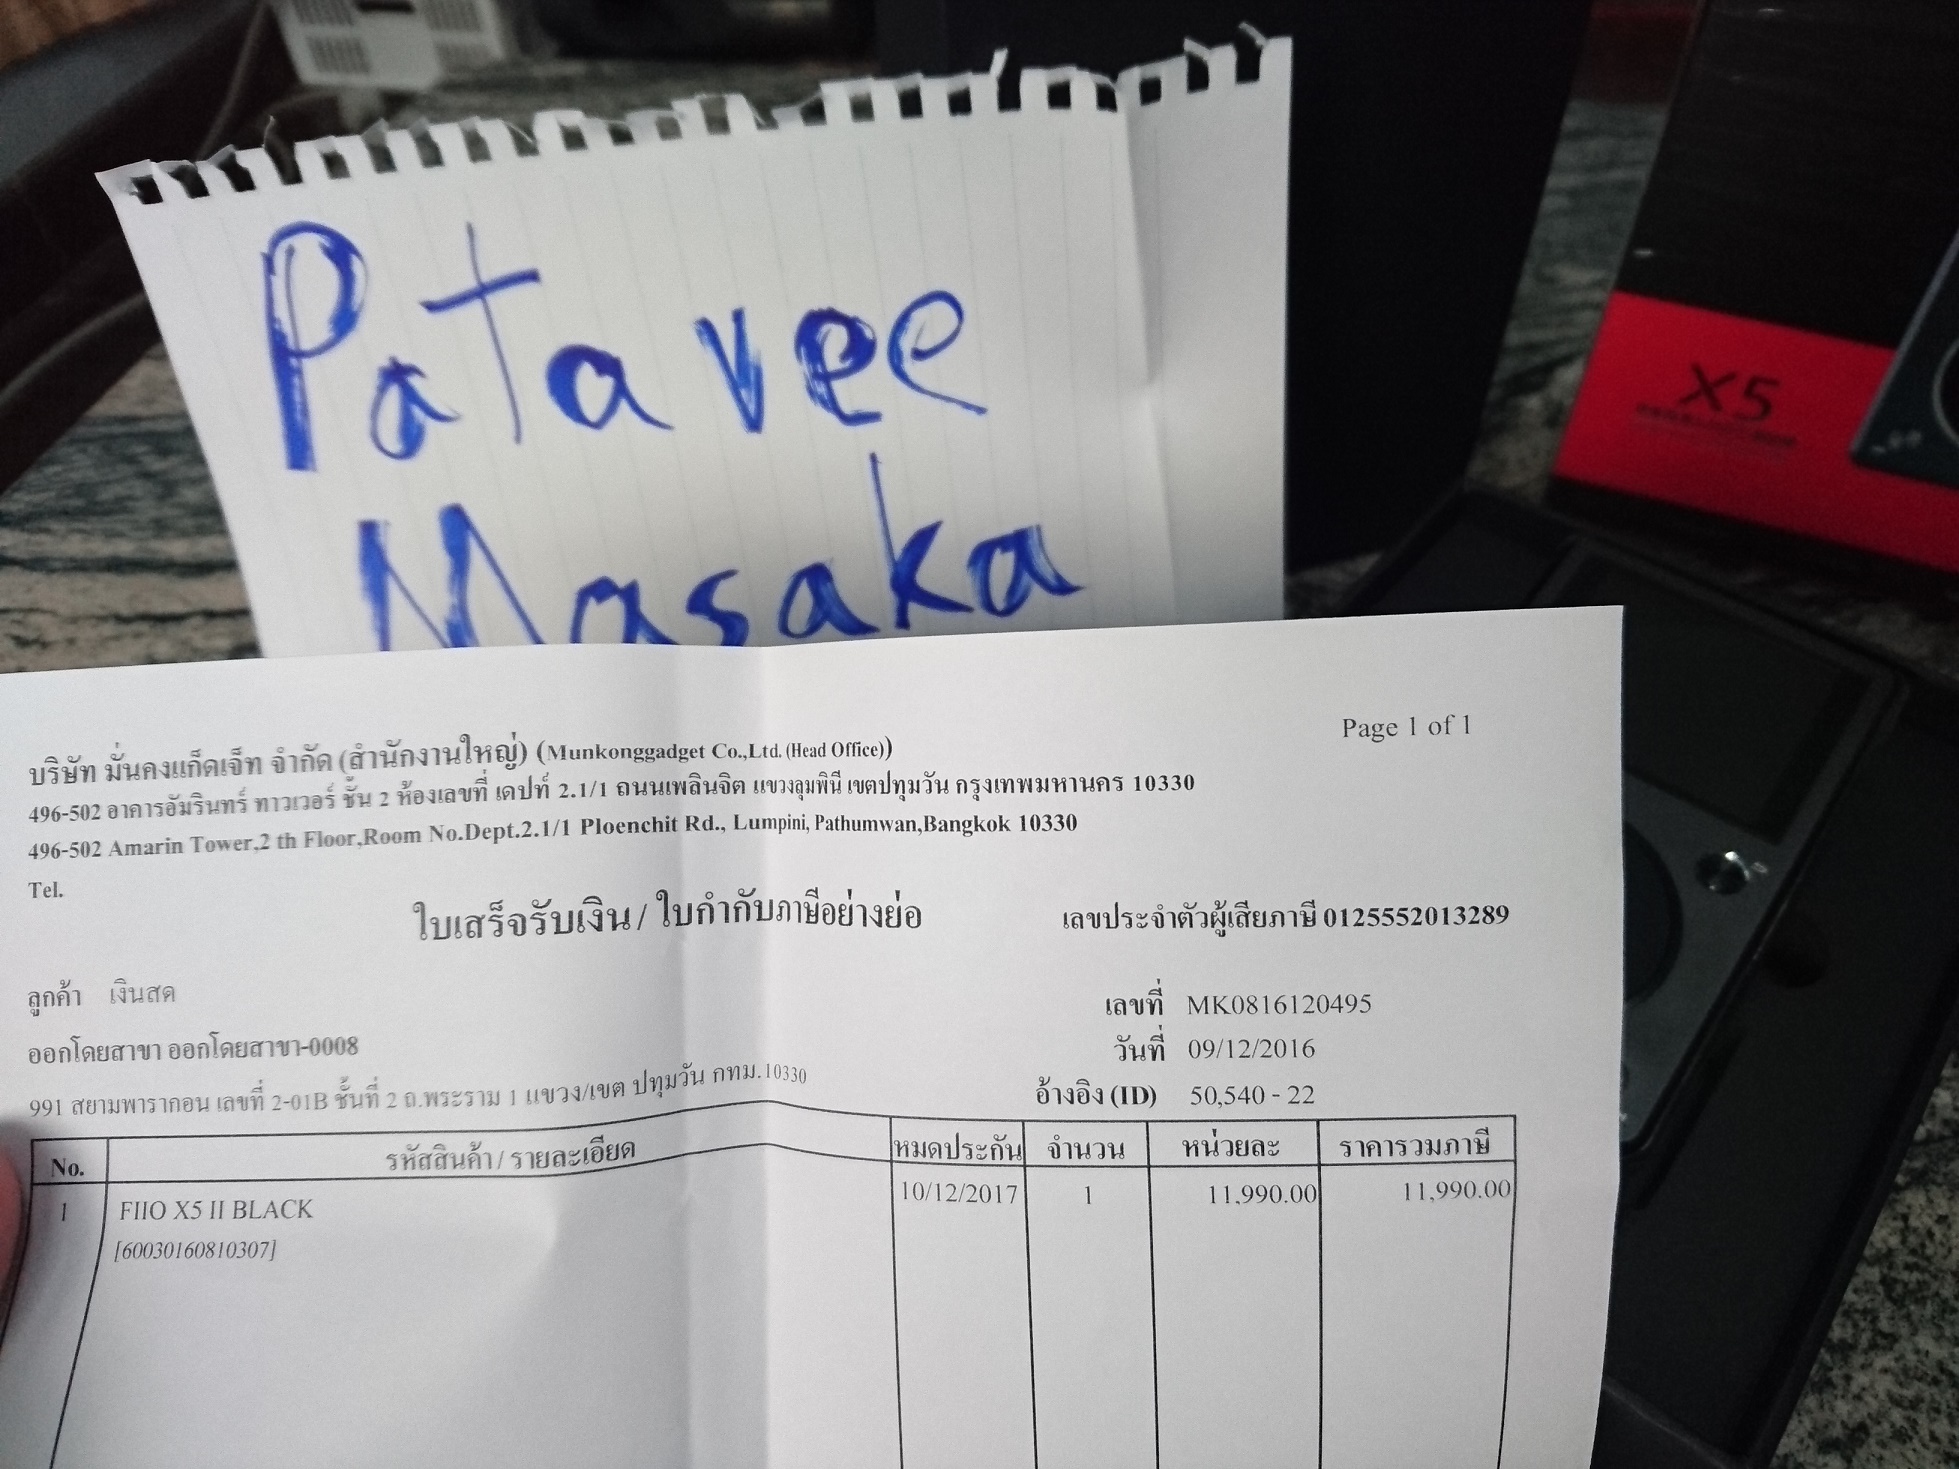 Patavee
Masaka
X5
Page 1 of 1
บริษัท มั่นคงแก็ดเจ็ท จำกัด (สำนักงานใหญ่) (Munkonggadget Co.,Ltd. (Head Office))
496-502 อาคารอัมรินทร์ ทาวเวอร์ ชั้น 2 ห้องเลขที่ เดปท์ 2.1/1 ถนนเพลินจิต แขวงลุมพินี เขตปทุมวัน กรุงเทพมหานคร 10330
496-502 Amarin Tower,2 th Floor,Room No.Dept.2.1/1 Ploenchit Rd., Lumpini, Pathumwan,Bangkok 10330
Tel.
ใบเสร็จรับเงิน / ใบกำกับภาษีอย่างย่อ
เลขประจำตัวผู้เสียภาษี 0125552013289
ลูกค้า เงินสด
เลขที่ MK0816120495
ออกโดยสาขา ออกโดยสาขา-0008
วันที่ 09/12/2016
991 สยามพารากอน เลขที่ 2-01B ชั้นที่ 2 ถ.พระราม 1 แขวง/เขต ปทุมวัน กทม.10330
อ้างอิง (ID) 50,540 - 22
No. รหัสสินค้า / รายละเอียด หมดประกัน จำนวน หน่วยละ ราคารวมภาษี
1 FIIO X5 II BLACK 10/12/2017 1 11,990.00 11,990.00
[60030160810307]